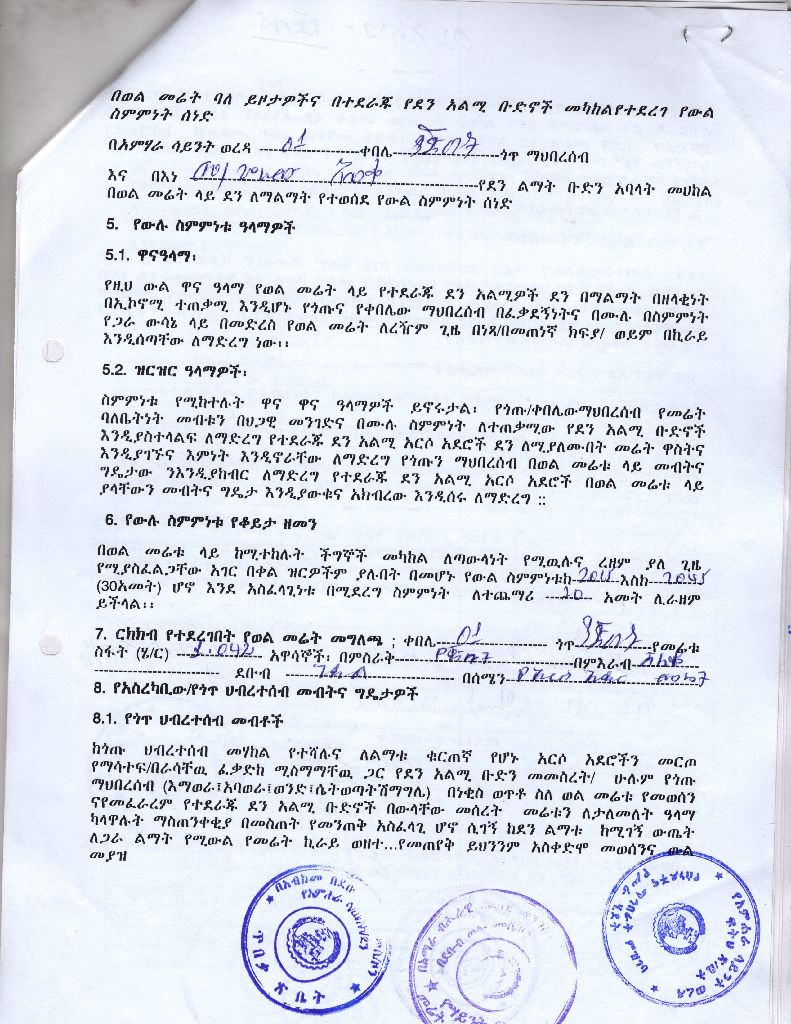 በወል መሬት ባለ ይዞታዎችና በተደራጁ የደን አልሚ ቡድኖች መካከልየተደረገ የውል
ስምምነት ሰነድ
በአምሃራ ሳይንት ወረዳ 01 ቀበሌ ጎጥ ማህበረሰብ
እና በእነ የደን ልማት ቡድን አባላት መሀከል
በወል መሬት ላይ ደን ለማልማት የተወሰደ የውል ስምምነት ሰነድ
5. የውሉ ስምምነቱ ዓላማዎች
5.1. ዋናዓላማ፡
የዚህ ውል ዋና ዓላማ የወል መሬት ላይ የተደራጁ ደን አልሚዎች ደን በማልማት በዘላቂነት
በኢኮኖሚ ተጠቃሚ እንዲሆኑ የጎጡና የቀበሌው ማህበረሰብ በፈቃደኝነትና በሙሉ በስምምነት
የጋራ ውሳኔ ላይ በመድረስ የወል መሬት ለረዥም ጊዜ በነጻ/በመጠነኛ ክፍያ/ ወይም በኪራይ
እንዲሰጣቸው ለማድረግ ነው፡፡
5.2. ዝርዝር ዓላማዎች፡
ስምምነቱ የሚከተሉት ዋና ዋና ዓላማዎች ይኖሩታል፡ የጎጡ/ቀበሌውማህበረሰብ የመሬት
ባለቤትነት መብቱን በህጋዊ መንገድና በሙሉ ስምምነት ለተጠቃሚው የደን አልሚ ቡድኖች
እንዲያስተላልፍ ለማድረግ የተደራጁ ደን አልሚ አርሶ አደሮች ደን ለሚያለሙበት መሬት ዋስትና
እንዲያገኙና እምነት እንዲኖራቸው ለማድረግ የጎጡን ማህበረሰብ በወል መሬቱ ላይ መብትና
ግዴታው ንእንዲያከብር ለማድረግ የተደራጁ ደን አልሚ አርሶ አደሮች በወል መሬቱ ላይ
ያላቸውን መብትና ግዴታ እንዲያውቁና አክብረው እንዲሰሩ ለማድረግ ፡፡
6. የውሉ ስምምነቱ የቆይታ ዘመን
በወል መሬቱ ላይ ከሚተከሉት ችግኞች መካከል ለጣውላነት የሚዉሉና ረዘም ያለ ጊዜ
የሚያስፈልጋቸው አገር በቀል ዝርዎችም ያሉበት በመሆኑ የውል ስምምነቱከ እስከ
(30አመት) ሆኖ እንደ አስፈላጊነቱ በሚደረግ ስምምነት ለተጨማሪ 10 አመት ሊራዘም
ይችላል፡፡
7. ርክክብ የተደረገበት የወል መሬት መግለጫ ; ቀበሌ 01 ጎጥ የመሬቱ
ስፋት (ሄ/ር) አዋሳኞች፡ በምስራቅ በምእራብ
ደቡብ ገደል በሰሜን
8. የአስረካቢው/የጎጥ ህብረተሰብ መብትና ግዴታዎች
8.1. የጎጥ ህብረተሰብ መብቶች
ከጎጡ ህብረተሰብ መሃከል የተሻሉና ለልማቱ ቁርጠኛ የሆኑ አርሶ አደሮችን መርጦ
የማሳተፍ/በራሳቸዉ ፈቃድከ ሚስማማቸዉ ጋር የደን አልሚ ቡድን መመስረት/ ሁሉም የጎጡ
ማህበረሰብ (እማወራ፤አባወራ፤ወንድ፤ሴትወጣትሽማግሌ) በነቂስ ወጥቶ ስለ ወል መሬቱ የመወሰን
ናየመፈራረም የተደራጁ ደን አልሚ ቡድኖች በውላቸው መሰረት መሬቱን ለታለመለት ዓላማ
ካላዋሉት ማስጠንቀቂያ በመስጠት የመንጠቅ አስፈላጊ ሆኖ ሲገኝ ከደን ልማቱ ከሚገኝ ውጤት
ለጋራ ልማት የሚውል የመሬት ኪራይ ወዘተ...የመጠየቅ ይህንንም አስቀድሞ መወሰንና ውል
መያዝ